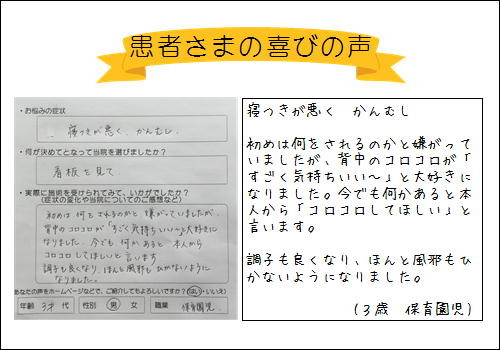 患者さまの喜びの声
・お悩みの症状
寝つきが悪く、かんむし
・何が決めてとなって当院を選びましたか?
看板を見て
・実際に施術を受けられてみて、いかがでしたか?
(症状の変化や当院についてのご感想など)
初めは何をされるのかと嫌がっていましたが、
背中のコロコロが「すごく気持ちいい〜」と大好きに
なりました。今でも何かあると本人から
コロコロしてほしいと言います
調子も良くなり、ほんと風邪もひかないように
なりました。
あなたの声をホームページなどで、ご紹介してもよろしいですか?(はい・いいえ)
年齢 3才 代 性別 男 女 職業 保育園児
寝つきが悪く かんむし
初めは何をされるのかと嫌がって
いましたが、背中のコロコロが「
すごく気持ちいい〜」と大好きに
なりました。今でも何かあると本
人から「コロコロしてほしい」と
言います。
調子も良くなり、ほんと風邪もひ
かないようになりました。
(3歳 保育園児)